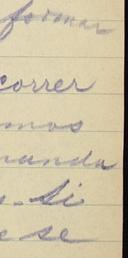 formar
correr
mos
anda
. Si
e se